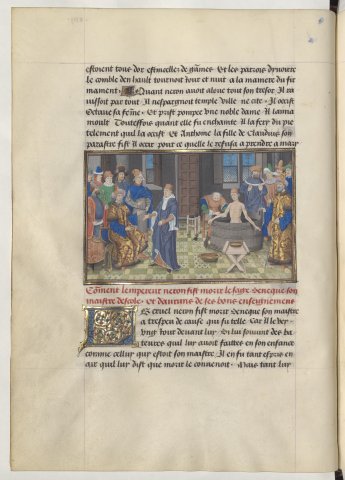 estoient tous dor estincellez de gammes Et les parois dyuoire
le comble den hault tournoit iour et nuit a la maniere du fir
mament Quant neron auoit aloue tout son tresor Il ra
uissoit par tout Il nespargnoit temple ville ne cite Il occist
Octaue sa feme Et prist pompee vne noble dame Il lama
moult Touteffois quant elle fu enchainte Il la fery du pie
telement quil la occist Et Anthoine la fille de Claudius son
parastre fist il occir pour ce quelle le refusa a prendre a mary
Coment lempereur neron fist morir le sage Seneque son
maistre descole et daucuns de ses bons enseignemens
cruel neron fist morir Seneque son maistre
a trespeu de cause qui fu telle Car il le
vng iour deuant luy Et luy souuint des ba
teures quil luy auoit faittes en son enfance
comme celluy qui estoit son maistre Il en fu tant espris en
yre quil luy dist que morir le conuenoit Mais tant luy